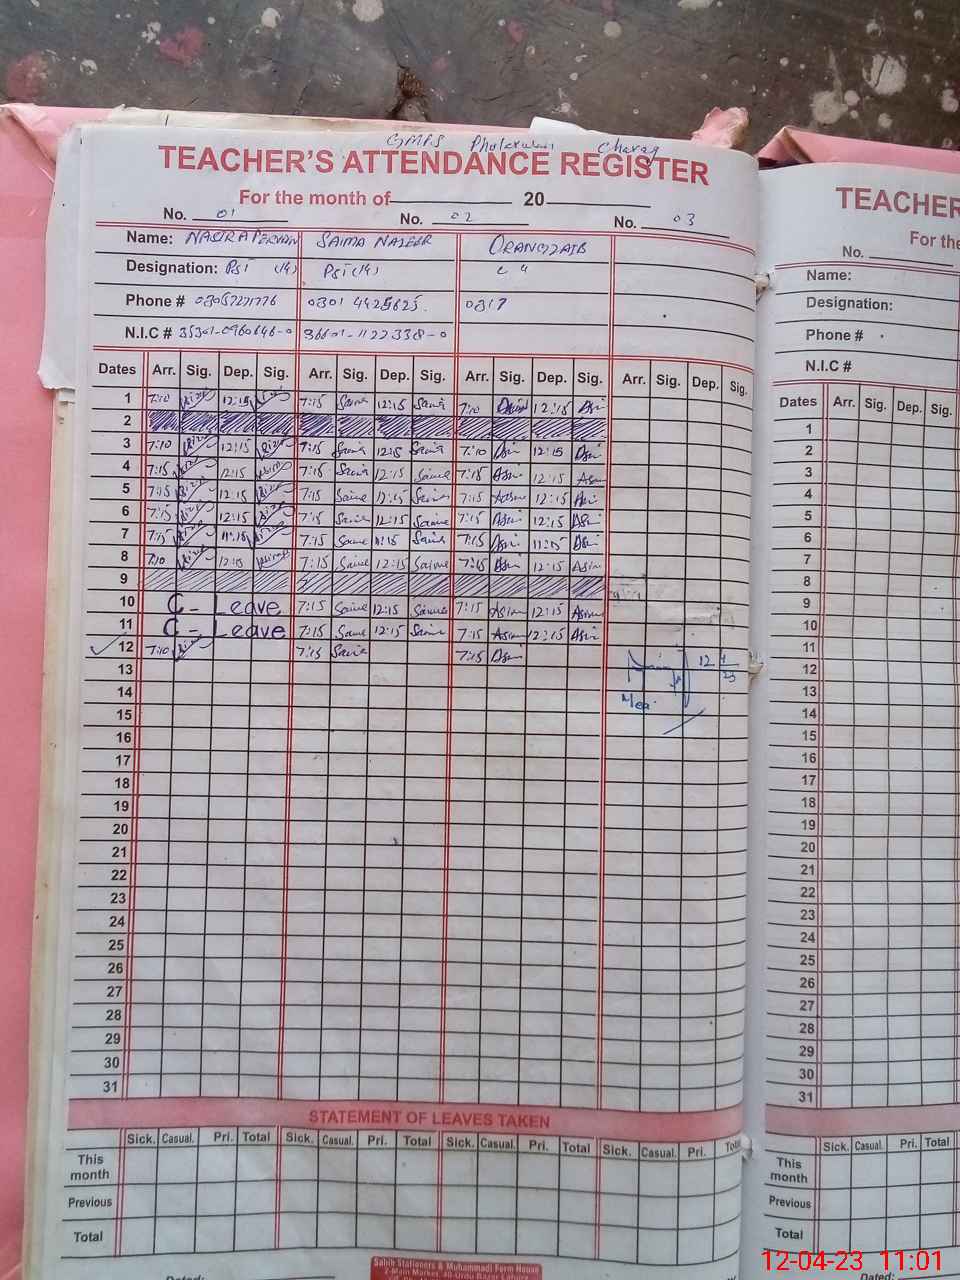 GMPS Charag
TEACHER'S ATTENDANCE REGISTER
For the month of 20
No. 01 No. 02 No. 03
Name: NASIRA PERVAIN SAIMA NAZEER ORANGZAIB
Designation: PST (14) PST (14) C 4
Phone # 0301 4425625. 0317
N.I.C # 35301-0960646-0 36601-1122338-0
Dates Arr. Sig. Dep. Sig. Arr. Sig. Dep. Sig. Arr. Sig. Dep. Sig. Arr. Sig. Dep. Sig.
1 7:10 12:15 7:15 Saima 12:15 Saima 7:10 Asim 12:15 Asim
2
3 7:10 12:15 7:15 Saima 12:15 Saima 7:10 Asim 12:15 Asim
4 7:15 12:15 7:15 Saima 12:15 Saima 7:15 Asim 12:15 Asim
5 7:15 12:15 7:15 Saima 12:15 Saima 7:15 Asim 12:15 Asim
6 7:15 12:15 7:15 Saima 12:15 Saima 7:15 Asim 12:15 Asim
7 7:15 11:15 7:15 Saima 11:15 Saima 7:15 Asim 11:15 Asim
8 7:10 12:15 7:15 Saima 12:15 Saima 7:15 Asim 12:15 Asim
9
10 C - Leave 7:15 Saima 12:15 Saima 7:15 Asim 12:15 Asim
11 C - Leave 7:15 Saima 12:15 Saima 7:15 Asim 12:15 Asim
12 7:10 7:15 Saima 7:15 Asim 12 4 23
13 Mea
14
15
16
17
18
19
20
21
22
23
24
25
26
27
28
29
30
31
STATEMENT OF LEAVES TAKEN
Sick. Casual. Pri. Total Sick. Casual. Pri. Total Sick. Casual. Pri. Total Sick. Casual. Pri. Total
This month
Previous
Total
Dated: Dated:
Sahib Stationers & Muhammadi Form House
2-Main Market, 40-Urdu Bazar Lahore
TEACHER
For th
No.
Name:
Designation:
Phone #
N.I.C #
Dates Arr. Sig. Dep. Sig.
1
2
3
4
5
6
7
8
9
10
11
12
13
14
15
16
17
18
19
20
21
22
23
24
25
26
27
28
29
30
31
Sick. Casual. Pri. Total
This month
Previous
Total
12-04-23 11:01